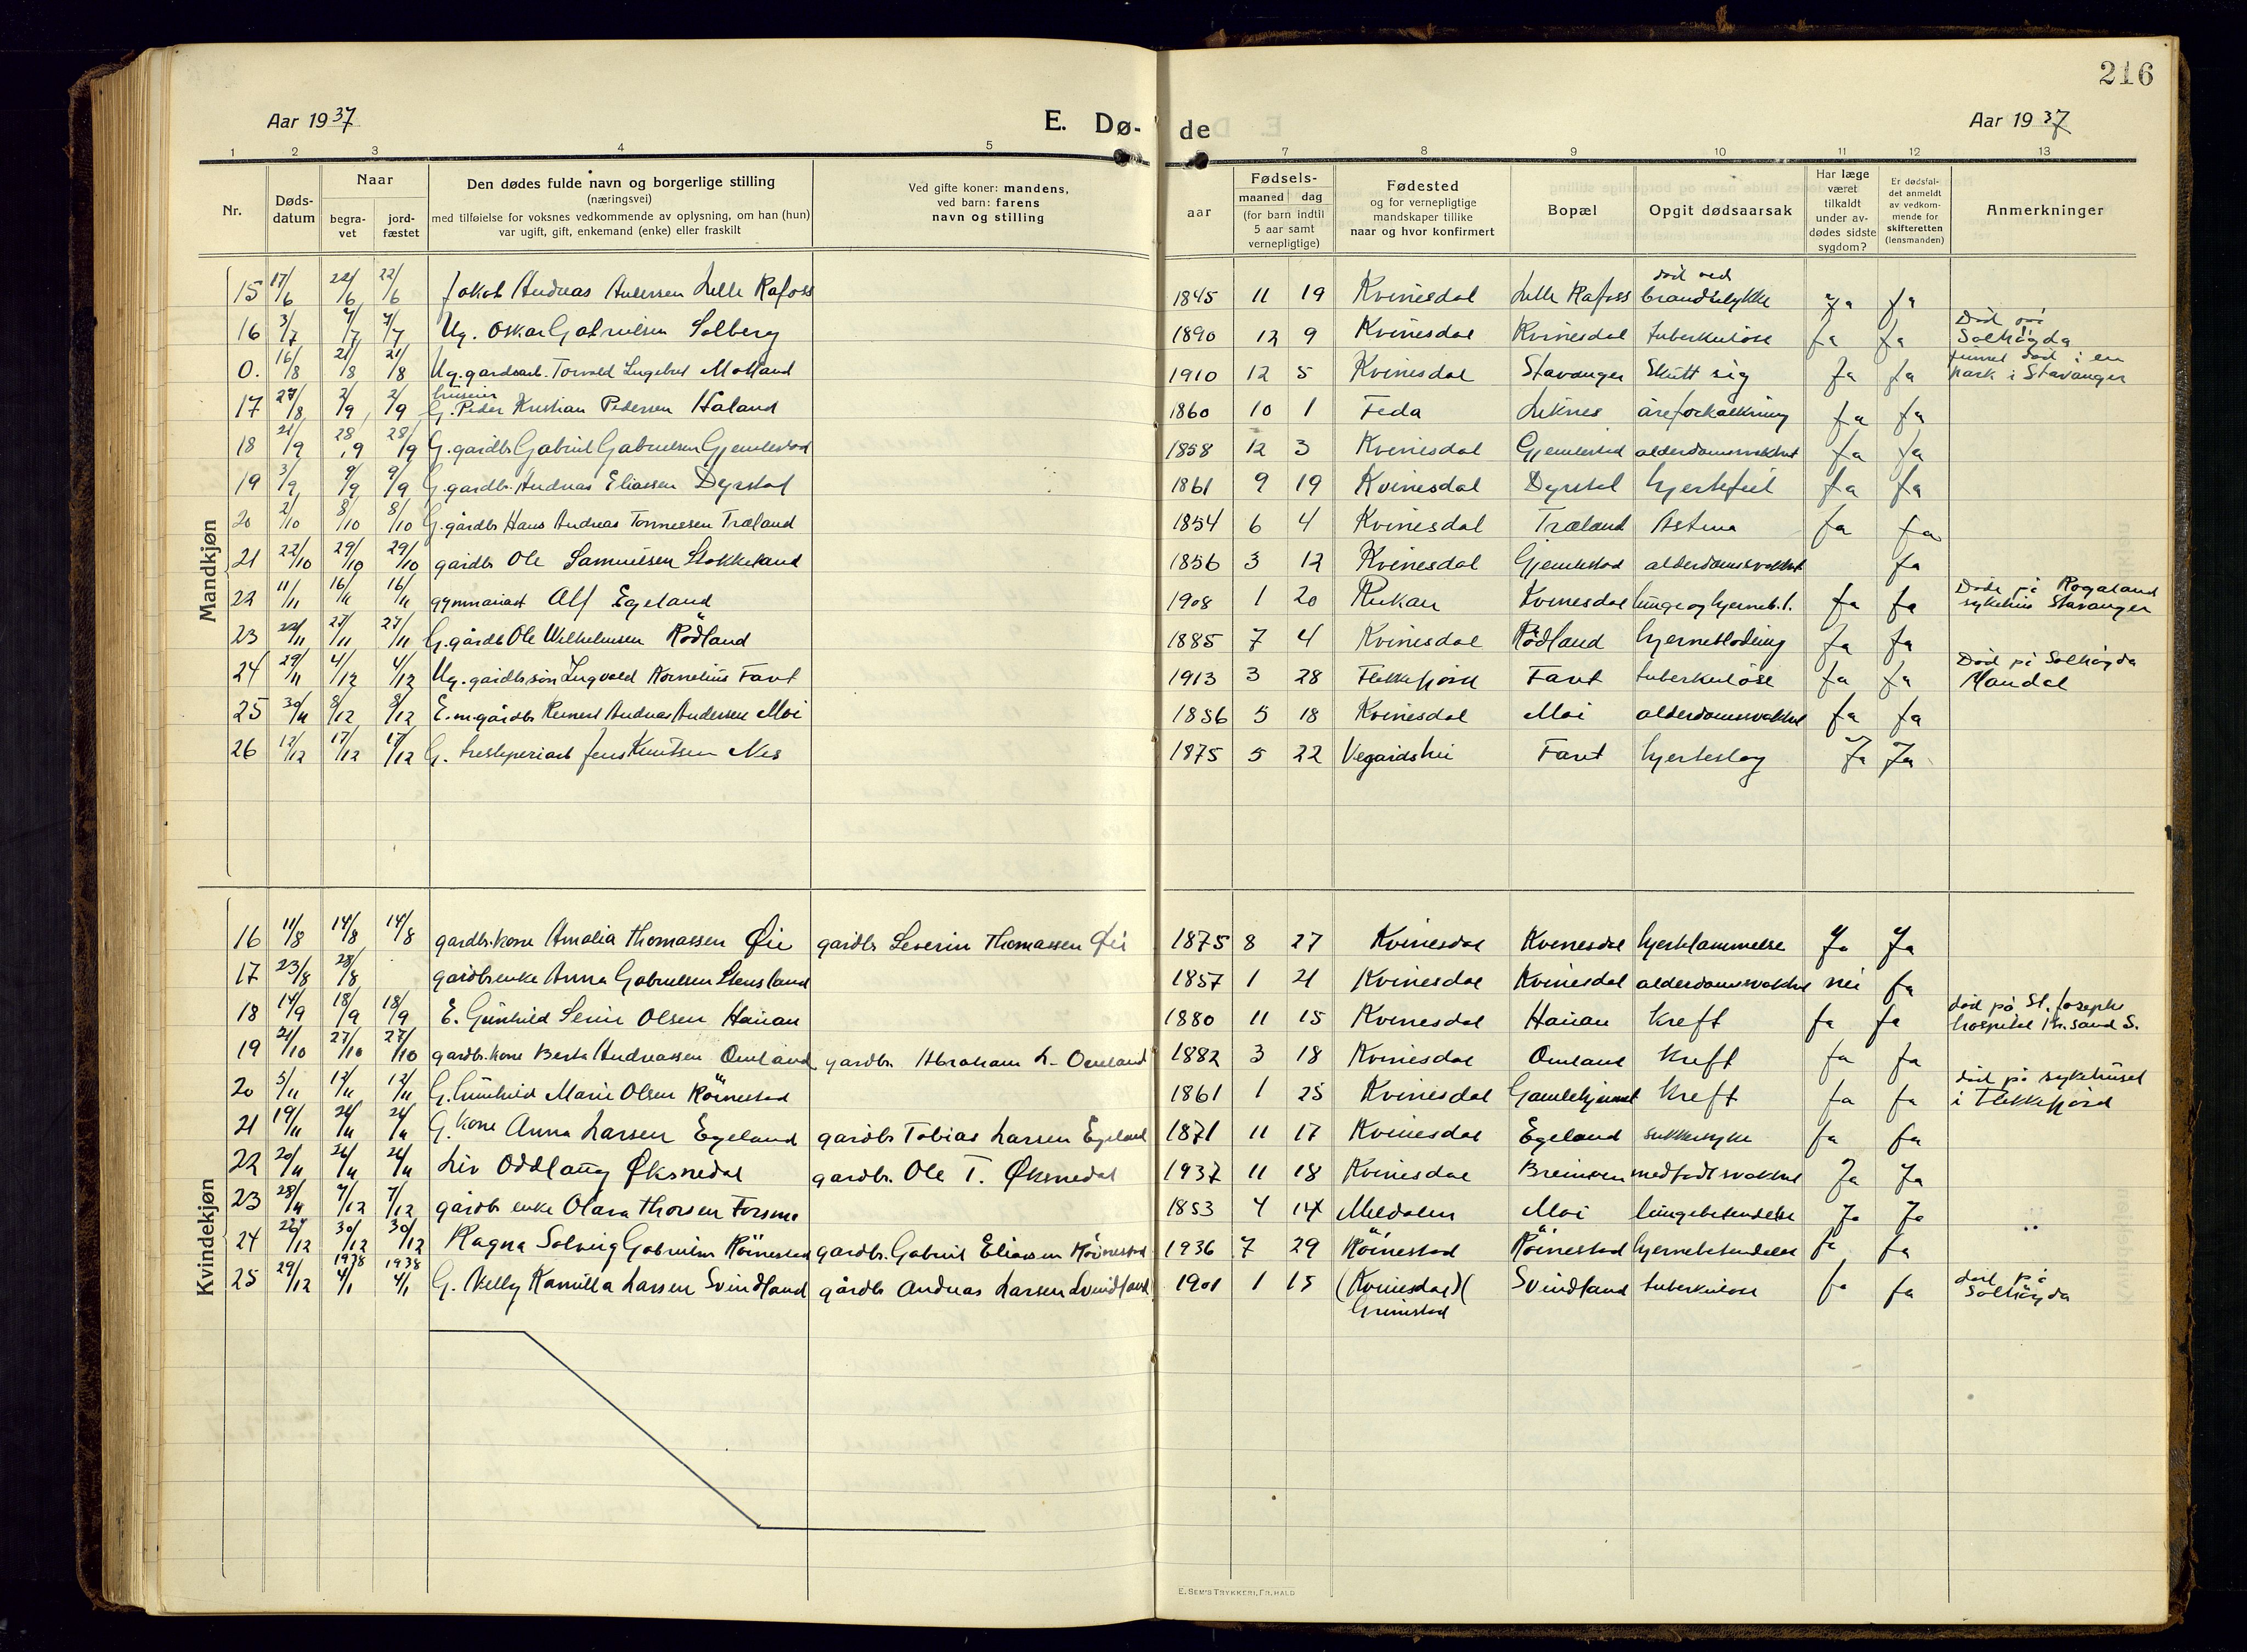 216
Aar 1937
E. Dø- de
Aar 1937
1 2 3 4 5 7 8 9 10 11 12 13
Nr.
Døds-
datum
Naar
begra-
vet
jord-
fæstet
Den dødes fulde navn og borgerlige stilling
(næringsvei)
med tilføielse for voksnes vedkommende av oplysning, om han (hun)
var ugift, gift, enkemand (enke) eller fraskilt
Ved gifte koner: mandens,
ved barn: farens
navn og stilling
Fødsels-
aar
maaned dag
(for barn indtil
5 aar samt
vernepligtige)
Fødested
og for vernepligtige
mandskaper tillike
naar og hvor konfirmert
Bopæl
Opgit dødsaarsak
Har læge
været
tilkaldt
under av-
dødes sidste
sygdom?
Er dødsfal-
det anmeldt
av vedkom-
mende for
skifteretten
(lensmanden)
Anmerkninger
Mandkjøn
15 17/6 22/6 22/6 Jakob Andreas Andersen Lille Rafoss 1845 11 19 Kvinesdal Lille Rafoss død ved brandulykke Ja Ja
16 3/7 9/7 9/7 Ug. Oskar Gabrielsen Solberg 1890 12 9 Kvinesdal Kvinesdal tuberkulöse Ja Ja Död på Solhögda
0. 16/8 21/8 21/8 Ug. gardsarb. Torvald Ingebret Molland 1910 12 5 Kvinesdal Stavanger Skutt sig Ja Ja funnet död i en park i Stavanger
17 27/8 2/9 2/9 G. Peder Kristian Pedersen Haland 1860 10 1 Feda Liknes åreforkalkning Ja Ja
18 21/9 28/9 28/9 G. gardbr Gabriel Gabrielsen Gjemlestad 1858 12 3 Kvinesdal Gjemlestad alderdomssvakhet Ja Ja
19 3/9 9/9 9/9 G. gardbr. Andreas Eliassen Dyrstad 1861 9 19 Kvinesdal Dyrstad hjertefeil Ja Ja
20 2/10 8/10 8/10 G. gårdbr Hans Andreas Tonnessen Træland 1854 6 4 Kvinesdal Træland Astma Ja Ja
21 22/10 29/10 29/10 gårdbr Ole Samuelsen Stokkeland 1856 3 12 Kvinesdal Gjemlestad alderdomssvakhet Ja
22 11/11 16/11 16/11 gymnasiast Alf Egeland 1908 1 20 Rukan Kvinesdal lunge og hjerneb.t. Ja Ja Döde på Rogaland sykehus Stavanger
23 22/11 27/11 27/11 G. gårdb Ole Wilhelmsen Rödland 1885 7 4 Kvinesdal Rödland hjerneblödning Ja Ja
24 29/11 4/12 4/12 Ug. gardbr.sön Ingvald Kornelius Faret 1913 3 28 Flekkefjord Faret tuberkulöse Ja Ja Död på Solhögda Mandal
25 30/11 8/12 8/12 E.m. gårdbr Reinert Andreas Andersen Moi 1856 5 18 Kvinesdal Moi alderdomssvakhet Ja Ja
26 12/12 17/12 17/12 G. treskperiarb Jens Knutsen Nes 1875 5 22 Vegårdshei Faret hjerteslag Ja Ja
Kvindekjøn
16 11/8 14/8 14/8 gardbr.kone Amalia Thomassen Øie gardbr Severin Thomassen Øie 1875 8 27 Kvinesdal Kvinesdal hjertelammelse Ja Ja
17 23/8 28/8 gardbrenke Anna Gabrielsen Stensland 1857 1 21 Kvinesdal Kvinesdal alderdomssvakhet nei Ja
18 14/9 18/9 18/9 E. Gunhild Serine Olsen Hauan 1880 11 15 Kvinesdal Hauan Kreft Ja Ja död på St. Josephs hospital Kr.sand S.
19 21/10 27/10 27/10 gardbr.kone Berta Andreassen Omland gardbr. Abraham L. Omland 1882 3 18 Kvinesdal Omland Kreft Ja Ja
20 5/11 12/11 12/11 G. Gunhild Marie Olsen Röinestad 1861 1 25 Kvinesdal Gamlehjemmet Kreft Ja Ja död på sykehuset i Flekkefjord
21 19/11 24/11 24/11 G. kone Anna Larsen Egeland gardbr Tobias Larsen Egeland 1871 11 17 Kvinesdal Egeland sukkersyke Ja Ja
22 20/11 26/11 26/11 Liv Oddlaug Øksnedal gardbr. Ole T. Øksnedal 1937 11 18 Kvinesdal medfödt svakhet Ja Ja
23 28/11 7/12 7/12 gårdb enke Olava Thorsen 1853 4 14 Moi lungebetendelse Ja Ja
24 30/12 30/12 Ragna Solveig Gabrielsen Röinestad gardbr. Gabriel Eliassen Röinestad 1936 7 29 Röinestad Röinestad hjernebetendelse Ja Ja
25 29/12 1938 4/1 1938 4/1 G. Nelly Kamilla Larsen Svindland gårdbr Andreas Larsen Svindland 1901 1 15 (Kvinesdal) Grimstad Svindland tuberkulose Ja Ja död på Solhögda
E. SEM'S TRYKKERI, FR.HALD